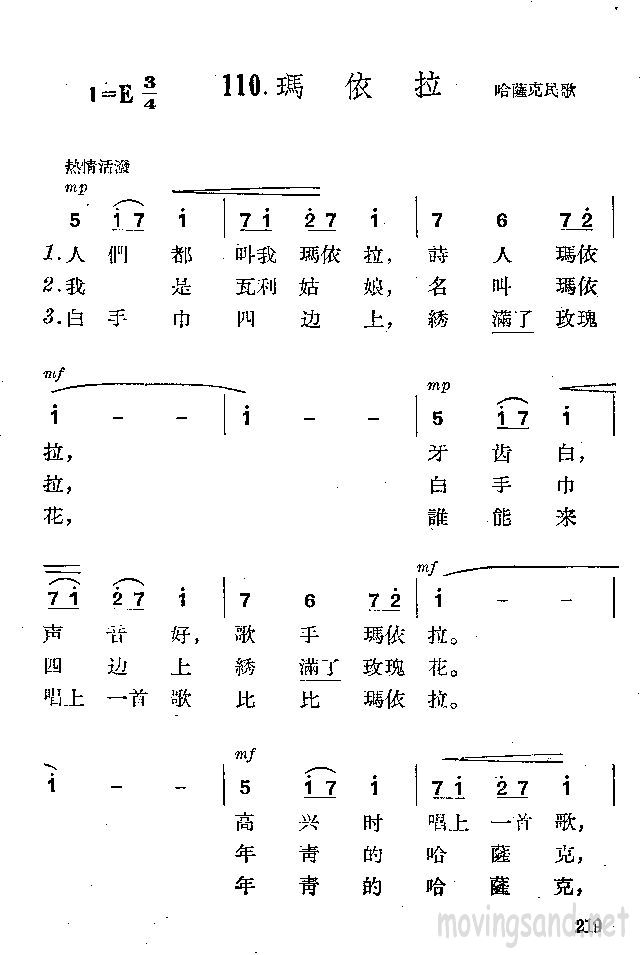 110. 瑪依拉
1=E 3/4 哈薩克民歌
熱情活潑
mp
5 i 7 i | 7 i 2 7 i | 7 6 7 2 |
1. 人們都叫我瑪依拉, 詩人瑪依
2. 我是瓦利姑娘, 名叫瑪依
3. 白手巾四边上, 綉滿了玫瑰
mf mp
i – – | i – – | 5 i 7 i |
拉, 牙齿白,
拉, 白手巾
花, 誰能来
mf
7 i 2 7 i | 7 6 7 2 | i – – |
声音好, 歌手瑪依拉。
四边上綉滿了玫瑰花。
唱上一首歌比比瑪依拉。
mf
i – – | 5 i 7 i | 7 i 2 7 i |
高兴时唱上一首歌,
年靑的哈薩克,
年靑的哈薩克,
219
movingsand.net